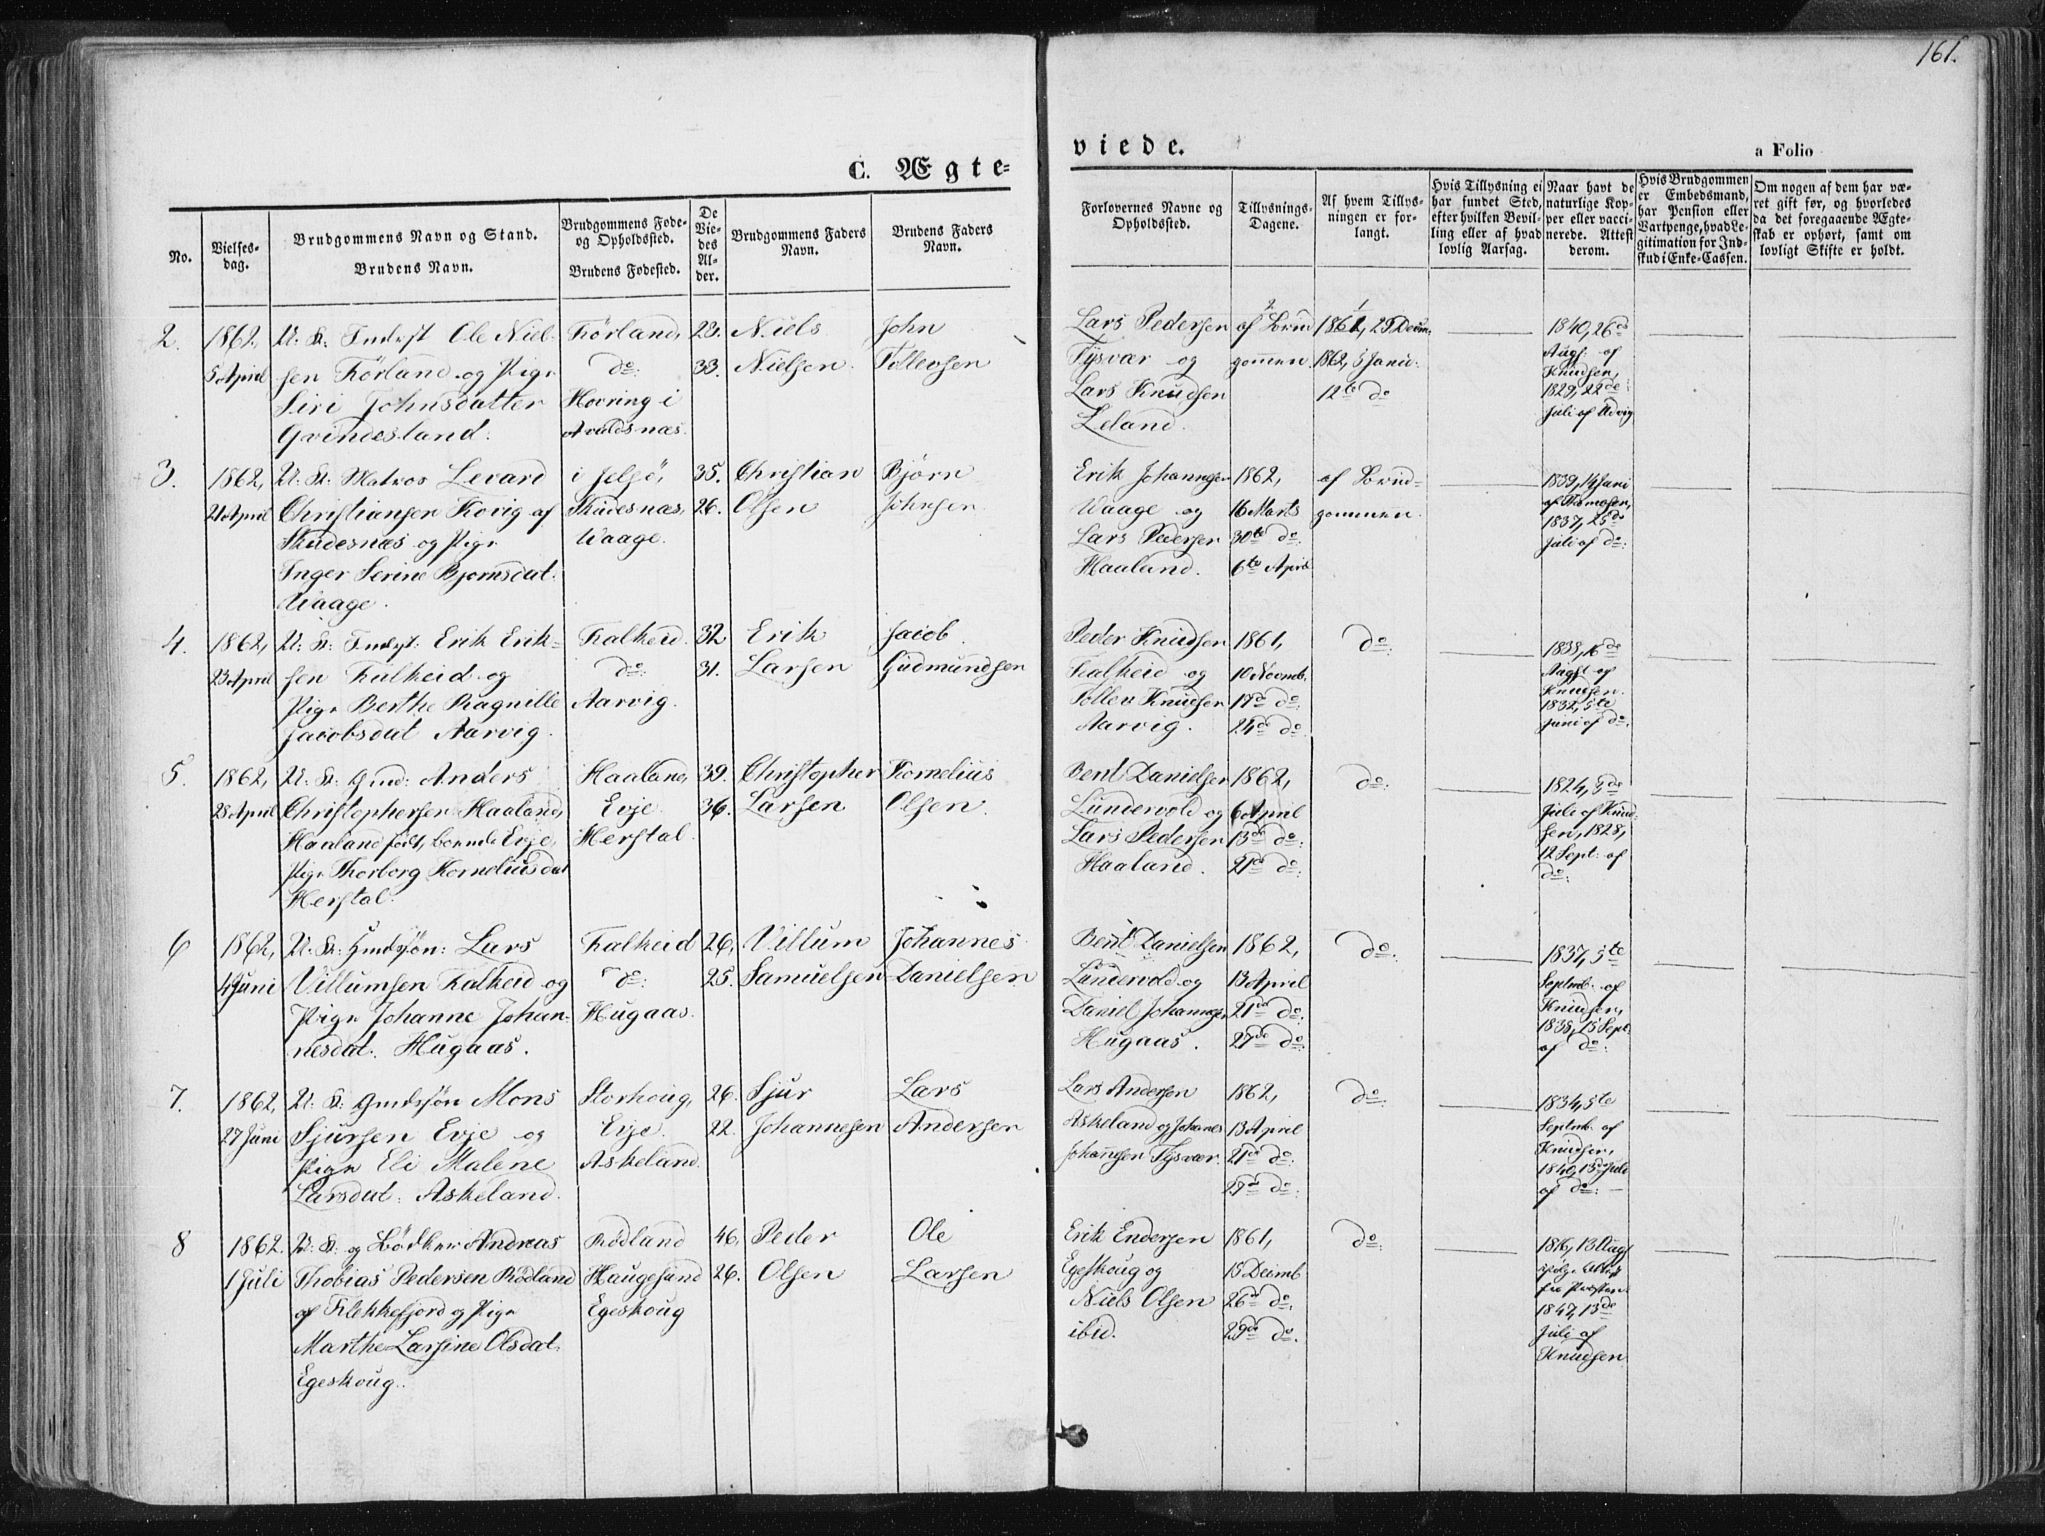 161.
C. Ægte-
viede.
a Folio
No.
Vielses-
dag.
Brudgommens Navn og Stand.
Brudens Navn.
Brudgommens Føde-
og Opholdssted.
Brudens Fødested.
De
Vie-
des
Al-
der.
Brudgommens Faders
Navn.
Brudens Faders
Navn.
Forlovernes Navne og
Opholdssted.
Tillysnings-
Dagene.
Af hvem Tillys-
ningen er for-
langt.
Hvis Tillysning ei
har fundet Sted,
efter hvilken Bevil-
ling eller af hvad
lovlig Aarsag.
Naar havt de
naturlige Kop-
per eller vacci-
nerede. Attest
derom.
Hvis Brudgommen
er Embedsmand,
har Pension eller
Vartpenge, hvad Le-
gitimation for Ind-
skud i Enke-Cassen.
Om nogen af dem har væ-
ret gift før, og hvorledes
da det foregaaende Ægte-
skab er ophørt, samt om
lovligt Skifte er holdt.
2.
1862,
5 April
U: K: Inderst Ole Niel-
sen Førland og Pige
Siri Johnsdatter
Gvindesland.
Førland,
do:
Hovring i
Avaldsnæs.
23.
33.
Niels
Nielsen.
John
Tollevsen
Lars Pedersen
Tysvær og
Lars Knudsen
Leland.
af Brud
gommen
1861, 29 Decm.
1862, 5 Janu:
12te do
1840, 26de
Augs: af
Knudsen,
1829, 22de:
Juli af Udvig
3.
1862,
21 April
U: K: Matros Levard
Christiansen Kovig af
Skudesnæs og Pige
Inger Serine Bjørnsdat.
Waage.
i Jelsø,
Skudesnæs,
Waage.
35.
26.
Christian
Olsen
Bjørn
Johnsen
Erik Johannesen
Waage og
Lars Pedersen
Haaland.
1862,
16 Marts
30te do:
6te April
af Brud-
gommen.
1832, 14 Juni
af Thomasen,
1837, 25de
Juli af do:
4.
1862,
23 April
U: K: Inderst: Erik Erik-
sen Falkeid og
Pige Berthe Ragnille
Jacobsdat Aarvig.
Falkeid.
do:
Aarvig.
32
31.
Erik
Larsen
Jacob
Gudmundsen
Peder Knudsen
Falkeid og
Tollev Knudsen
Aarvig.
1861,
10 Novemb.
17de do:
24de do:
do:
1833, 16de
Augst af
Knudsen.
1832, 5te
Juni af do.
5.
1862,
28 April
U: K: Gmd: Anders
Christophersen Haaland,
Haaland født, boende Evje,
Pige Thorborg Korneliusdat
Herstal.
Haaland,
Evje
Herstal.
39.
36.
Christopher
Larsen
Kornelius
Olsen.
Bent Danielsen
Lundervold og
Lars Pedersen
Haaland.
1862,
6 April
13de do:
21de do:
do:
1824, 3de
Juli af Knud-
sen, 1828,
12 Sept: af
do:
6
1862,
4 Juni
U: K: Gmdssøn: Lars
Villumsen Falkeid og
Pige Johanne Johan-
nesdat. Hugaas.
Falkeid
do:
Hugaas.
26,
25.
Villum
Samuelsen
Johannes
Danielsen
Bent Danielsen
Lundervold og
Daniel Johannesen
Hugaas.
1862,
13 April
21de do:
27de do:
do:
1837, 5te
Septmb. af
Knudsen,
1838, 15 Sept
af do:
7.
1862,
27 Juni
U: K: Gmdssøn Mons
Sjursen Evje og
Pige Eli Malene
Larsdat: Askeland.
Storhoug,
Evje.
Askeland.
26.
22.
Sjur
Johannesen
Lars
Andersen
Lars Andersen
Askeland og Johanes
Johannsen Tysvær.
1862,
13 April
21de do:
27de do:
do:
1834, 5te
Septmb. af
Knudsen,
1840, 15de Juli
af do: —
8
1862.
1 Juli
U: K: og Bødker Andreas
Thobias Pedersen Rødland
af Flekkefjord og Pige
Marthe Larsine Olsdat.
Egeskoug.
Rødland
Haugesund
Egeskoug
46,
26.
Peder
Olsen
Ole
Larsen
Erik Endersen
Egeskoug og
Niels Olsen
ibid.
1861,
15 Decmb
26de do.
29de do.
do:
1816, 13 Augs
ifølge Attest
fra Præsten.
1847, 13de
Juli af
Knudsen